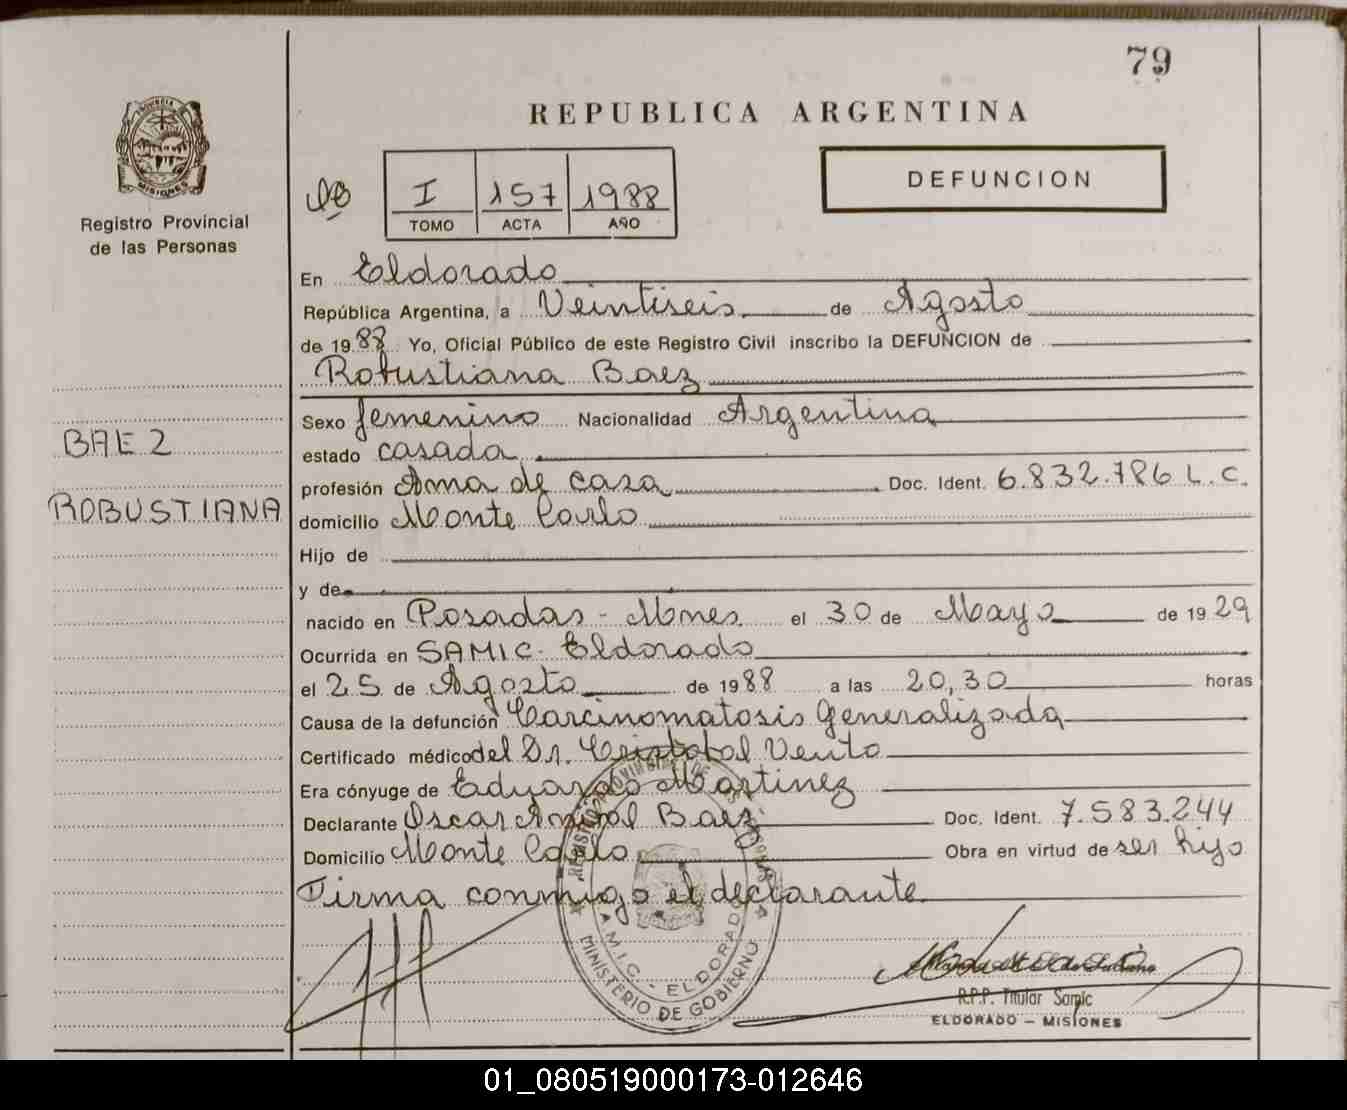 79
REPUBLICA ARGENTINA
PROVINCIA DE
MISIONES
Registro Provincial
de las Personas
I 157 1988
TOMO ACTA AÑO
DEFUNCION
En Eldorado
República Argentina, a Veintiseis de Agosto
de 1988 Yo, Oficial Público de este Registro Civil inscribo la DEFUNCION de
Robustiana Baez
BAEZ
ROBUSTIANA
Sexo femenino Nacionalidad Argentina
estado casada
profesión Ama de casa Doc. Ident. 6.832.786 L.C.
domicilio Monte Carlo
Hijo de
y de
nacido en Posadas - Mnes el 30 de Mayo de 1929
Ocurrida en SAMIC - Eldorado
el 25 de Agosto de 1988 a las 20,30 horas
Causa de la defunción Carcinomatosis Generalizada
Certificado médico del Dr. Cristobal Vento
Era cónyuge de Eduardo Martinez
Declarante Oscar Anibal Baez Doc. Ident. 7.583.244
Domicilio Monte Carlo Obra en virtud de ser hijo
Firma conmigo el declarante
REGISTRO PROVINCIAL DE LAS PERSONAS
S.A.M.I.C. - ELDORADO
MINISTERIO DE GOBIERNO
R.P.P. Titular Samic
ELDORADO – MISIONES
01_080519000173-012646